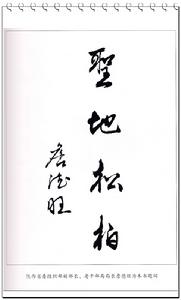 聖地松柏
詹德旺
陕西省委组织部副部长、老干部局局长詹德旺为本书题词